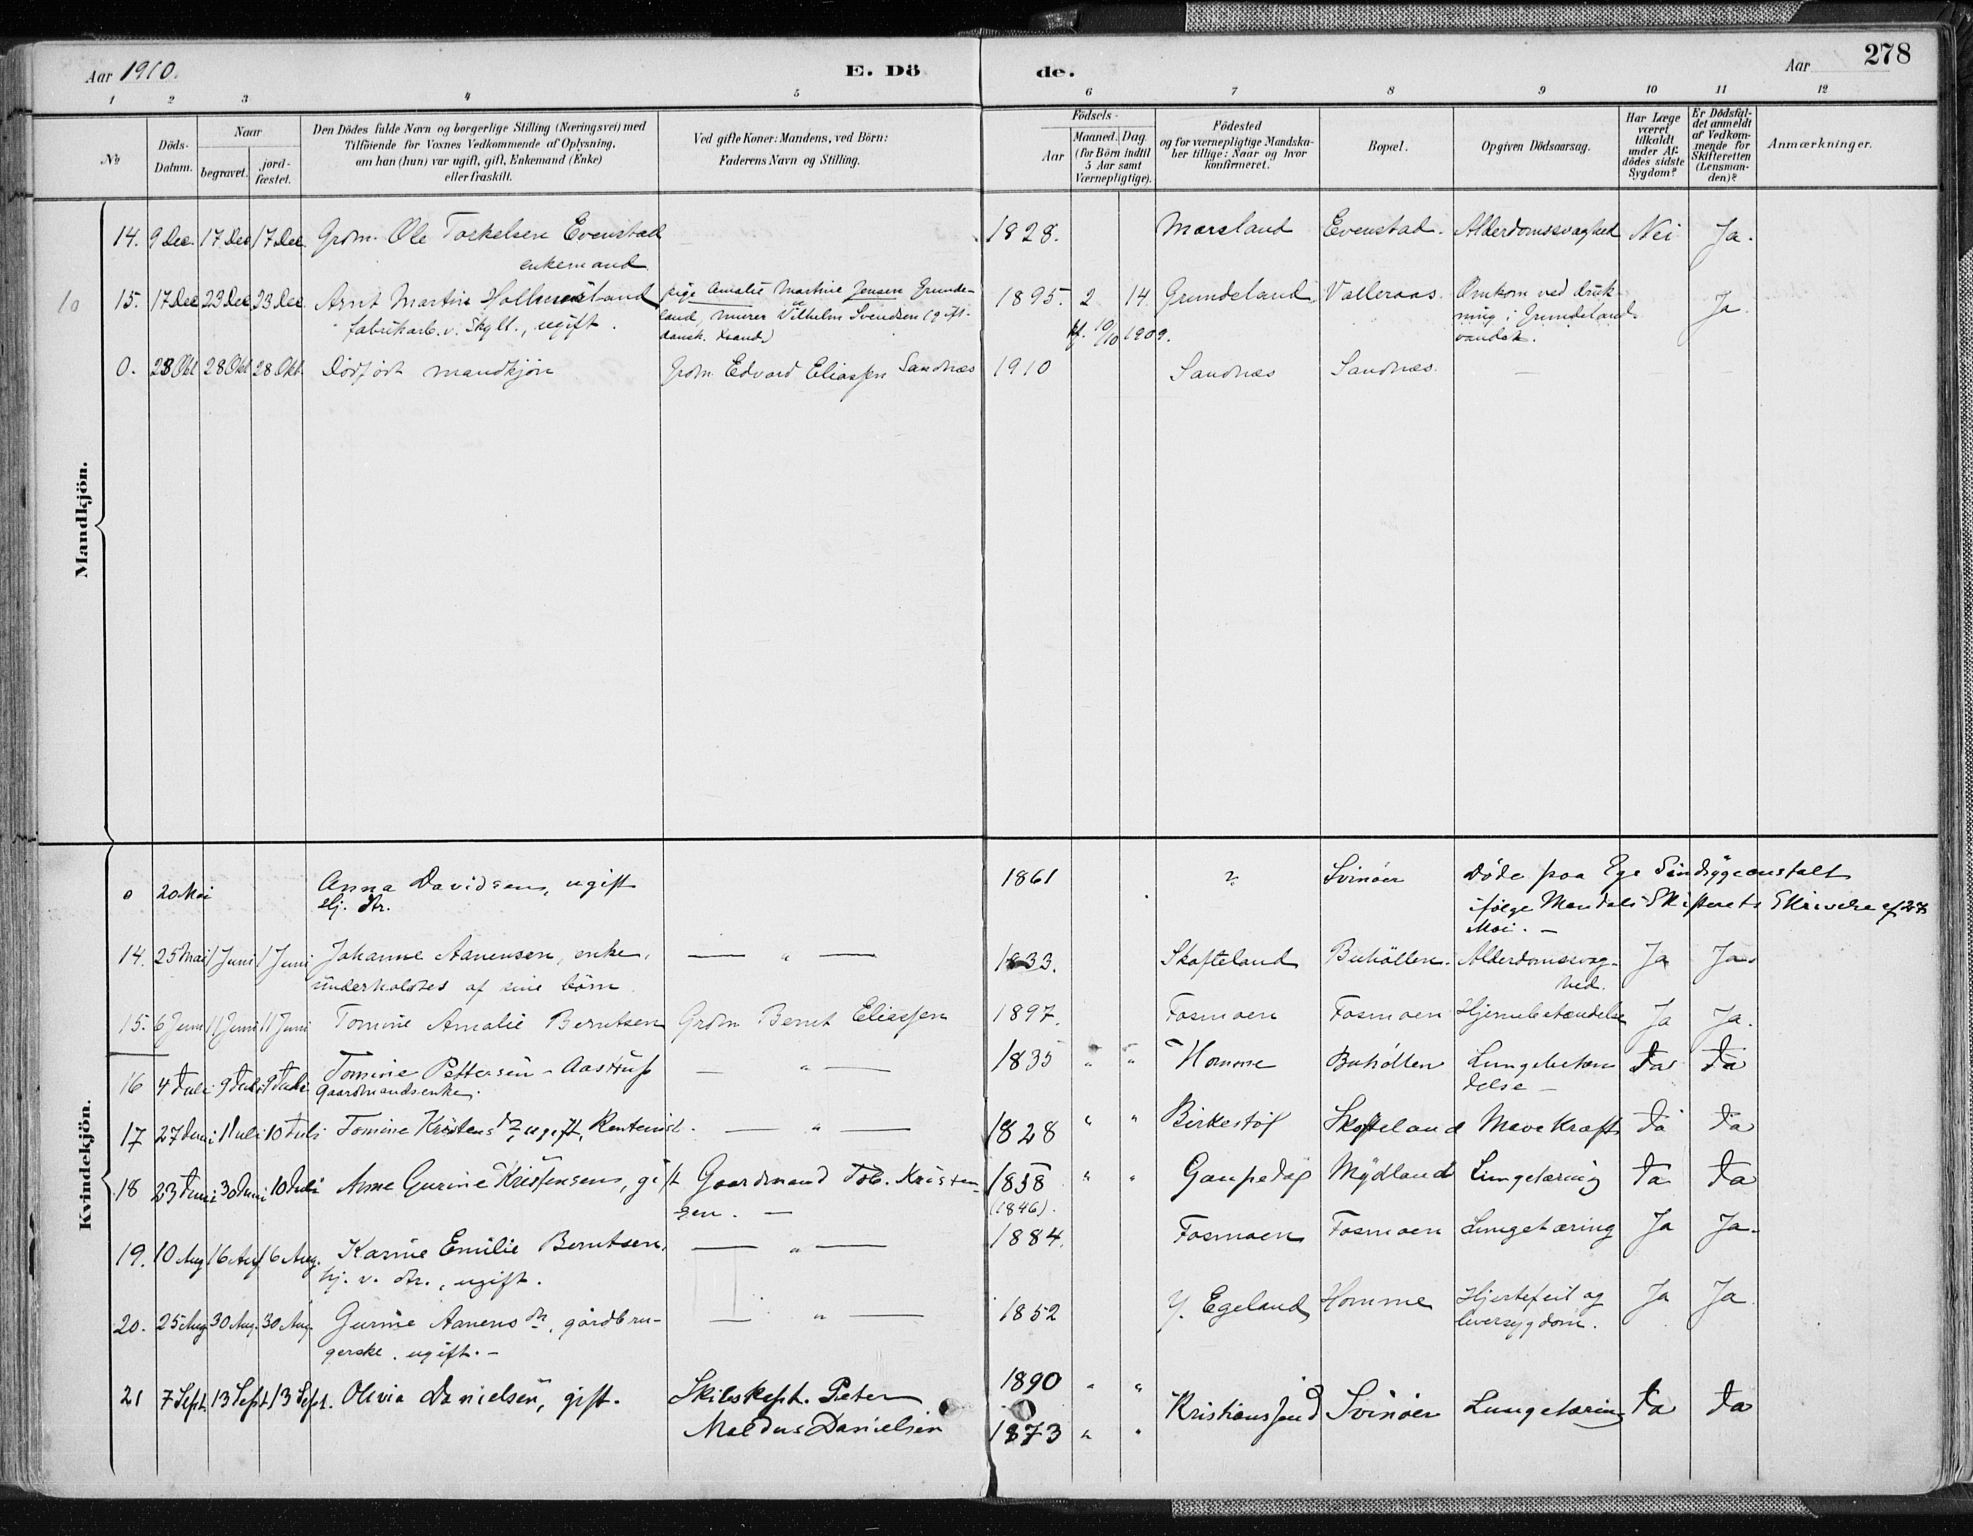 Aar 1910. E. Dö de. Aar 278
1 2 3 4 5 6 7 8 9 10 11 12
No
Döds-
Datum.
Naar
begravet.
jord-
fæstet.
Den Dödes fulde Navn og borgerlige Stilling (Næringsvei) med
Tilföiende for Voxnes Vedkommende af Oplysning,
om han (hun) var ugift, gift, Enkemand (Enke)
eller fraskilt.
Ved gifte Koner: Mandens, ved Börn:
Faderens Navn og Stilling.
Födsels-
Aar
Maaned. Dag.
(for Börn indtil
5 Aar samt
Værnepligtige).
Födested
og for værnepligtige Mandska-
ber tillige: Naar og hvor
konfirmeret.
Bopæl.
Opgiven Dödsaarsag.
Har Læge
været
tilkaldt
under Af-
dödes sidste
Sygdom?
Er Dödsfal-
det anmeldt
af Vedkom-
mende for
Skifteretten
(Lensman-
den)?
Anmærkninger.
Mandkjön.
14. 9 Dec. 17 Dec 17 Dec. Grdm. Ole Torkelsen Evenstad 1828. Marsland Evenstad. Alderdomssvaghed Nei Ja.
enkemand
10 15. 17 Dec 23 Dec 23 Dec. Arnt Martin pige Amalie Martine Jensen Grunde- 1895. 2 14. Grundeland Valleraas. Omkom ved druk- Ja
fabrikarb. v. ugift. land, murer Vilhelm Svendsen (gift- ning i Grundelands-
dansk. mand) kf. 10/10 1909. vandet.
0. 28 Okt 28 Okt 28 Okt. Dødfødt mandkjøn Grdm. Edvard Eliassen Sandnæs 1910 Sandnæs Sandnæs. —
Kvindekjön.
0 20 Mai Anna Davidsen, ugift 1861 ? Svinøer Døde paa Eg Sindsygeanstalt
ifølge Mandals Skifterets Skrivelse af 28
Mai. —
14. 25 Mai 1 Juni 1 Juni Johanne Aanensen, enke, — " — 1833. Skofteland Buhölten. Alderdomssvag- Ja Ja.
underholdtes af sine børn. hed.
15. 6 Juni 11 Juni 11 Juni Tomine Amalie Berntsen Grdm Bernt Eliassen 1897. Fosmoen Fosmoen Hjernebetændelse Ja Ja.
16 4 Juli 9 Juli 9 Juli Tomine Pettersen - Aastrup — " — 1835 " " Homme Buhölten Lungebetæn Ja Ja
Gaardmandsenke. delse —
17 27 Juni 1 Juli 10 Juli Tomine Kristensdr, ugift, Rentenist. — " — 1828 " " Birkestøl Skofteland Mavekræft Ja Ja
18 23 Juni 30 Juni 10 Juli Anne Gurine Kristensen, gift Gaardmand Tob. Kristen- 1858 " " Gaupedal Mydland Lungetæring Ja Ja
sen. — (1846).
19. 10 Aug 16 Aug 16 Aug. Karine Emilie Berntsen, — " — 1884. Fosmoen Fosmoen Lungetæring Ja Ja.
hj. v. dtr., ugift.
20. 25 Aug 30 Aug. 30 Aug. Gurine Aanensdtr, gårdbru- — " — 1852 Y. Egeland Homme Hjertefeil og Ja Ja
gerske. ugift. — leversygdom.
21 7 Sept. 13 Sept 13 Sept. Olivia Danielsen, gift. Skibskapt. Peter 1890 " " Kristianssand Svinøer Lungetæring Ja Ja
Danielsen 1873 " "